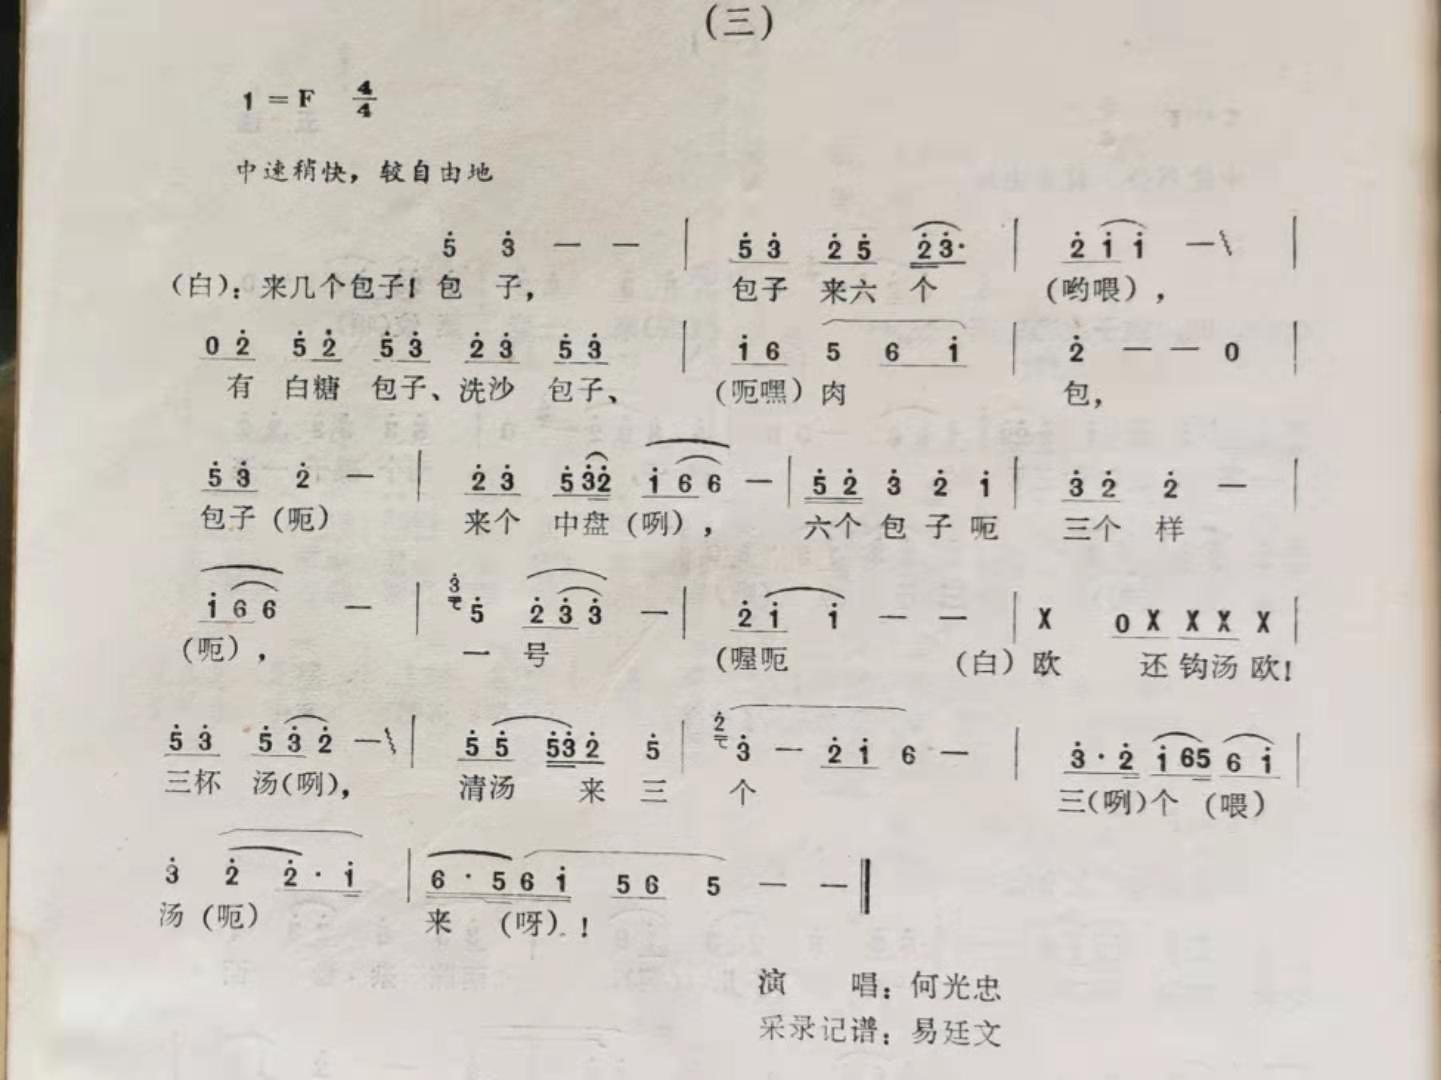 (三)
1＝F 4/4
中速稍快，较自由地
5̇ 3̇ — — | 5̇ 3̇ 2̇ 5̇ 2̇ 3̇· | 2̇ 1̇ 1̇ — |
（白）：来几个包子！包 子， 包子 来六 个 （哟喂），
0 2̇ 5̇ 2̇ 5̇ 3̇ 2̇ 3̇ 5̇ 3̇ | 1̇ 6 5 6 1̇ | 2̇ — — 0 |
有 白糖 包子、洗沙 包子、 （呃嘿）肉 包，
5̇ 3̇ 2̇ — | 2̇ 3̇ 5̇ 3̇ 2̇ 1̇ 6 6 — | 5̇ 2̇ 3̇ 2̇ 1̇ | 3̇ 2̇ 2̇ — |
包子（呃） 来个 中盘（咧）， 六个 包 子 呃 三个 样
1̇ 6 6 — | 3̇ 5̇ 2̇ 3̇ 3̇ — | 2̇ 1̇ 1̇ — — | X 0 X X X X |
（呃）， 一 号 （喔呃 （白）欧 还 钩汤 欧！
5̇ 3̇ 5̇ 3̇ 2̇ — | 5̇ 5̇ 5̇ 3̇ 2̇ 5̇ | 2̇ 3̇ — 2̇ 1̇ 6 — | 3̇· 2̇ 1̇ 6 5 6 1̇ |
三杯 汤（咧）， 清汤 来 三 个 三（咧）个 （喂）
3̇ 2̇ 2̇· 1̇ | 6· 5 6 1̇ 5 6 5 — — ‖
汤（呃） 来 （呀）！
演 唱：何光忠
采录记谱：易廷文